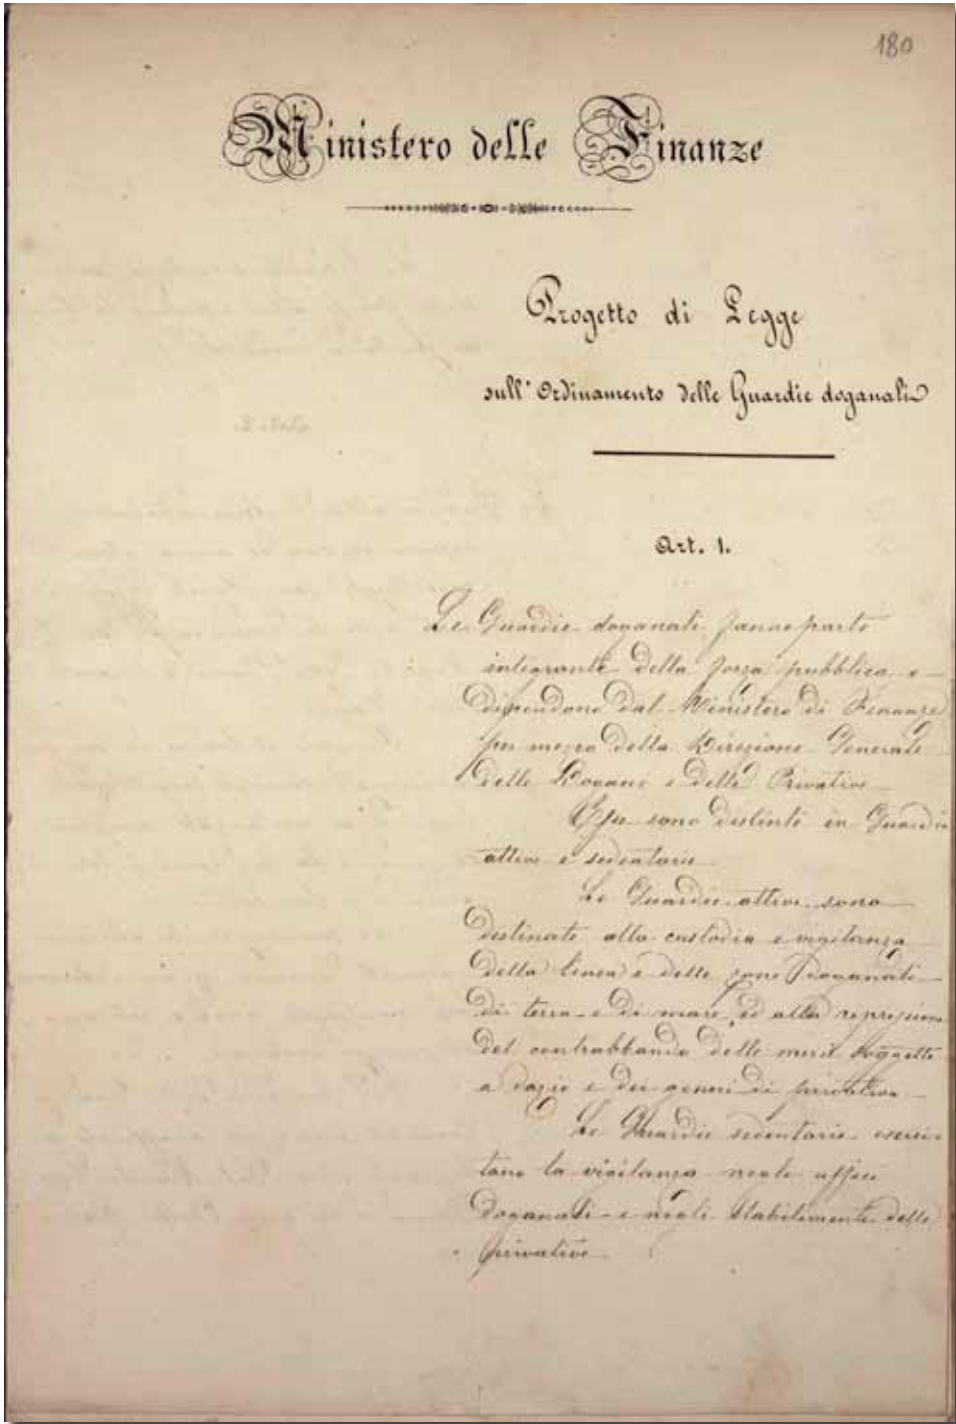 180
Ministero delle Finanze
Progetto di Legge
sull'Ordinamento delle Guardie doganali
Art. 1.
Le Guardie doganali fanno parte
integrante della forza pubblica e
dipendono dal Ministero di Finanze
per mezzo della Direzione Generale
delle Dogane e delle Privative
Esse sono distinte in Guardie
attive e sedentarie
Le Guardie attive sono
destinate alla custodia e vigilanza
della linea e delle zone doganali
di terra e di mare, ed alla repressione
del contrabbando delle merci soggette
a dazio e dei generi di privativa
Le Guardie sedentarie eserci-
tano la vigilanza negli uffici
doganali e negli stabilimenti delle
privative